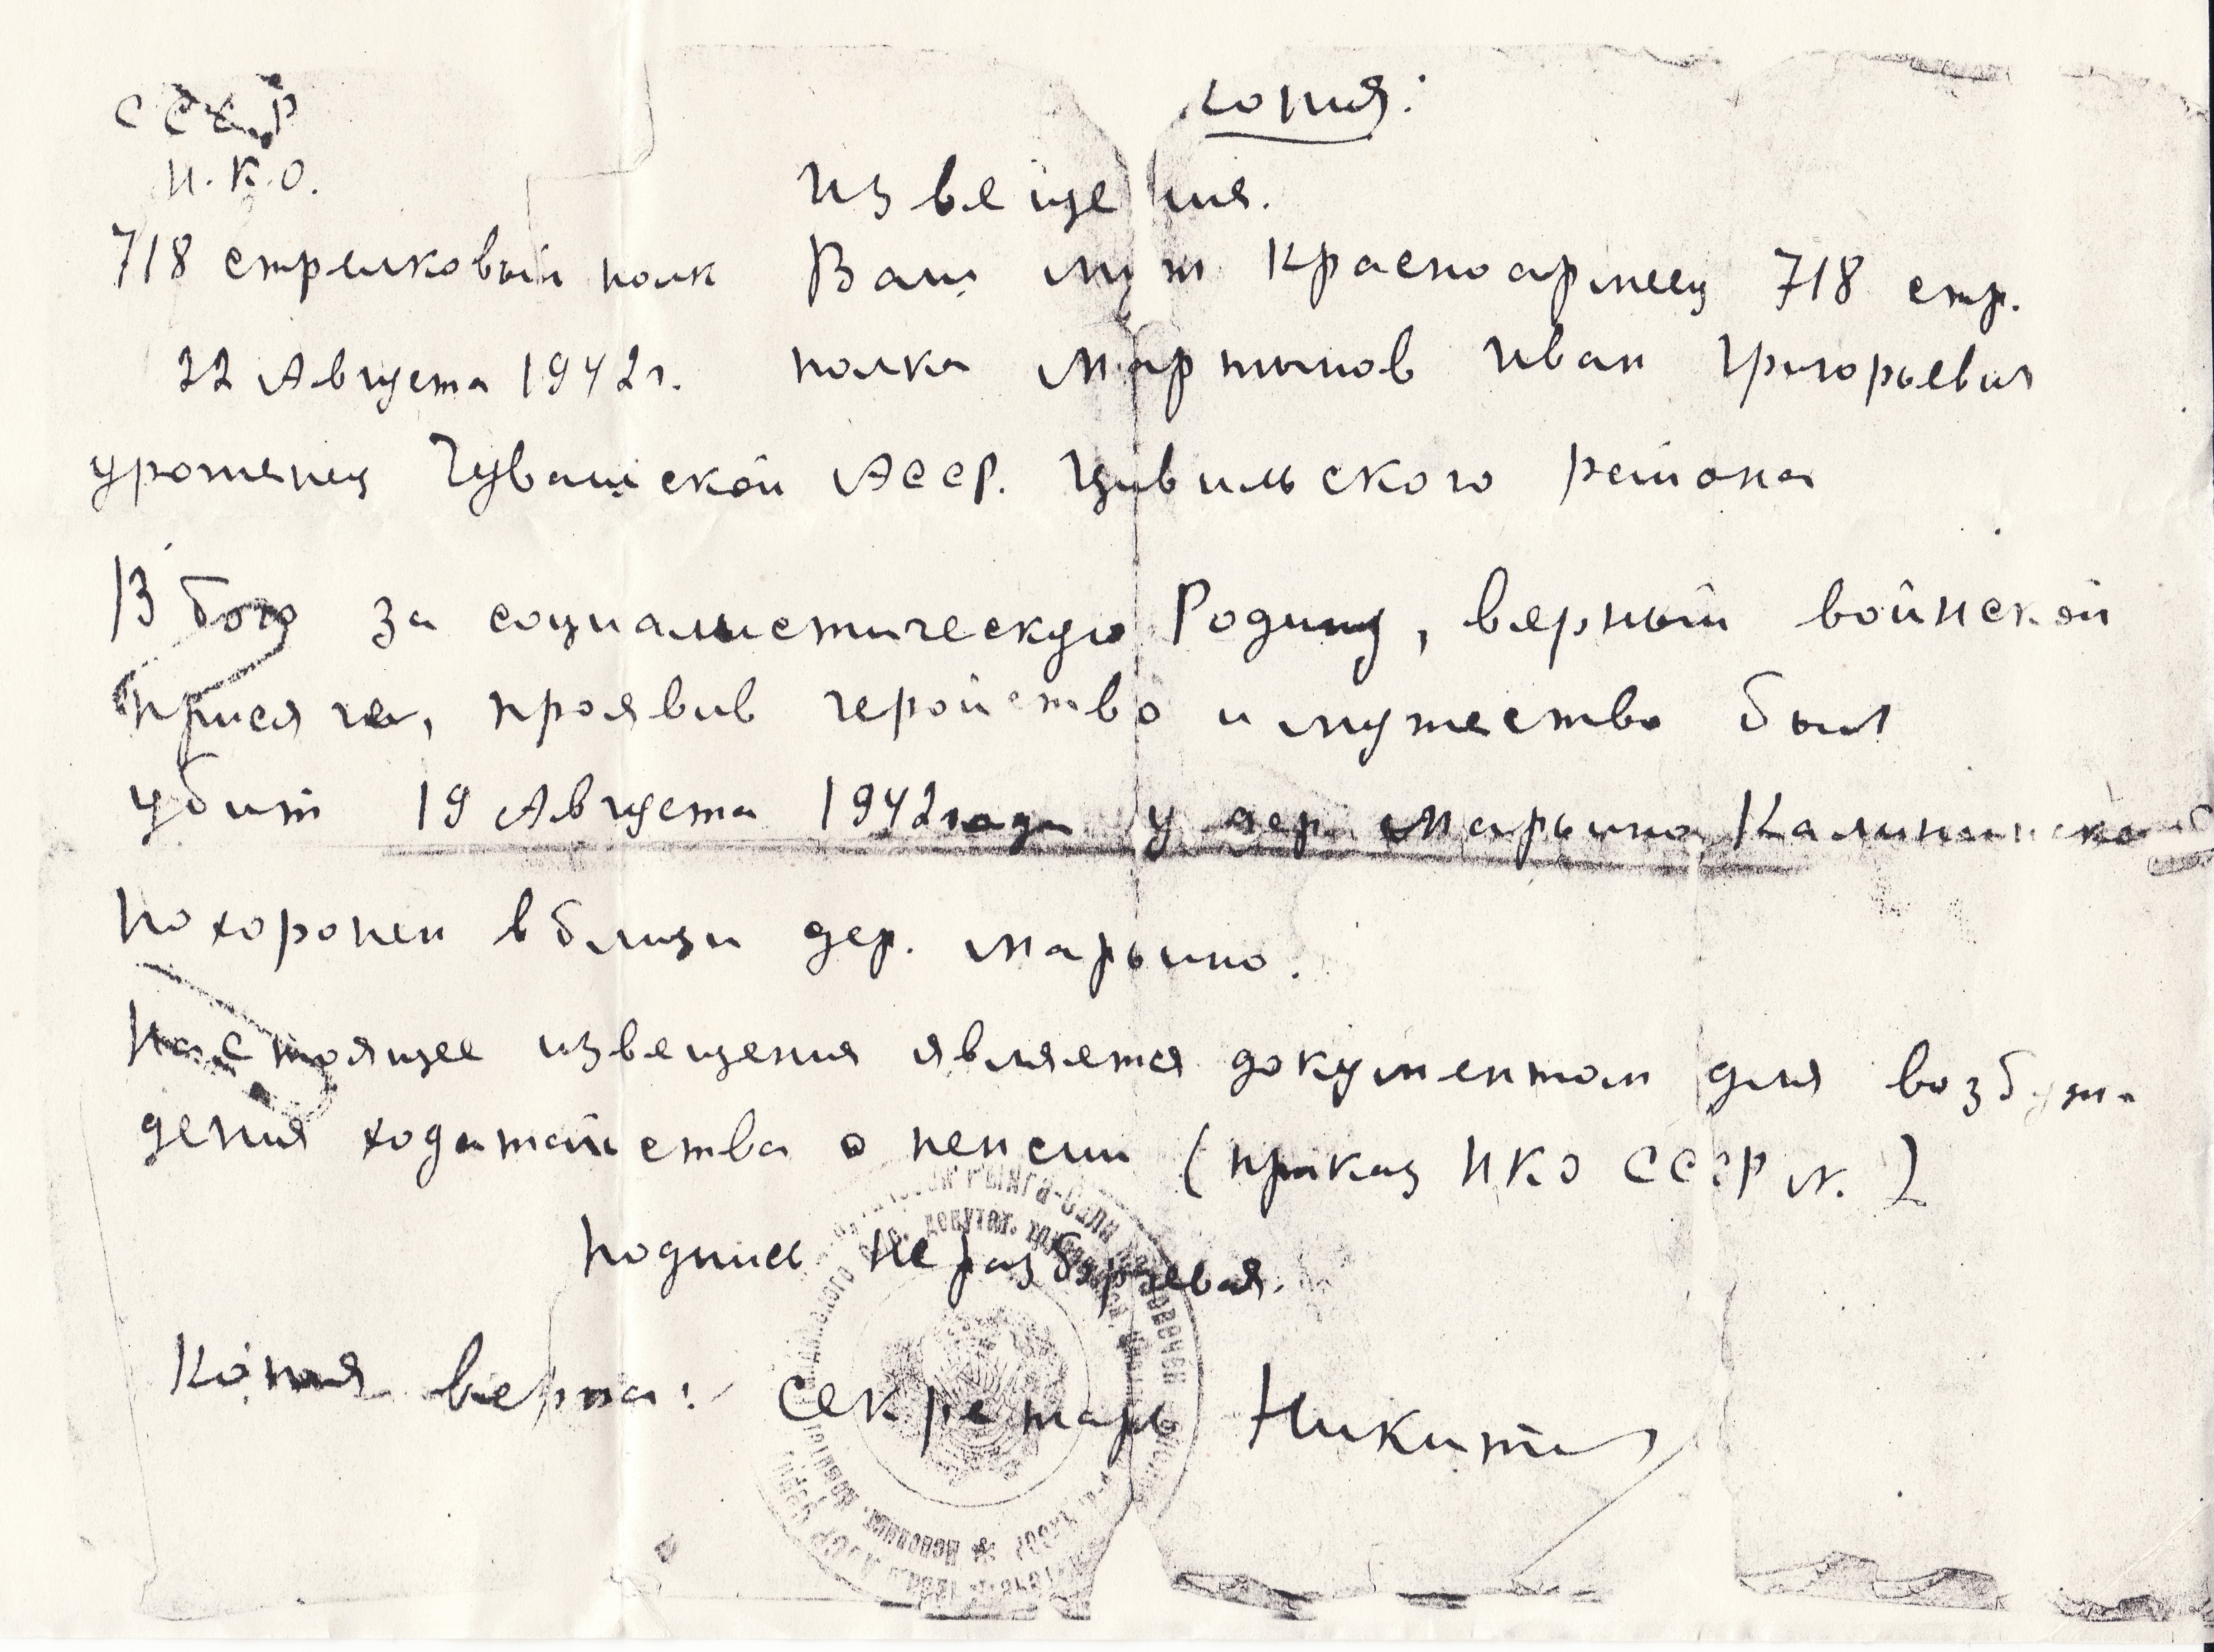 Копия:
СССР
Н.К.О.
Извещения.
718 стрелковый полк Ваш муж красноармеец 718 стр.
22 Августа 1942г. полка Мартынов Иван Григорьевич
уроженец Чувашской АССР. Цивильского района
В бою за социалистическую Родину, верный воинской
присяге, проявив геройство и мужество был
убит 19 Августа 1942 года у дер Марьино, Калининско
Похоронен вблизи дер. Марьино.
Настоящее извещения является документом для возбуж-
дения ходатайства о пенсии (приказ НКО СССР N. )
Подпись Неразборчевая.
Копия верна: Секретарь Никити
депутат.